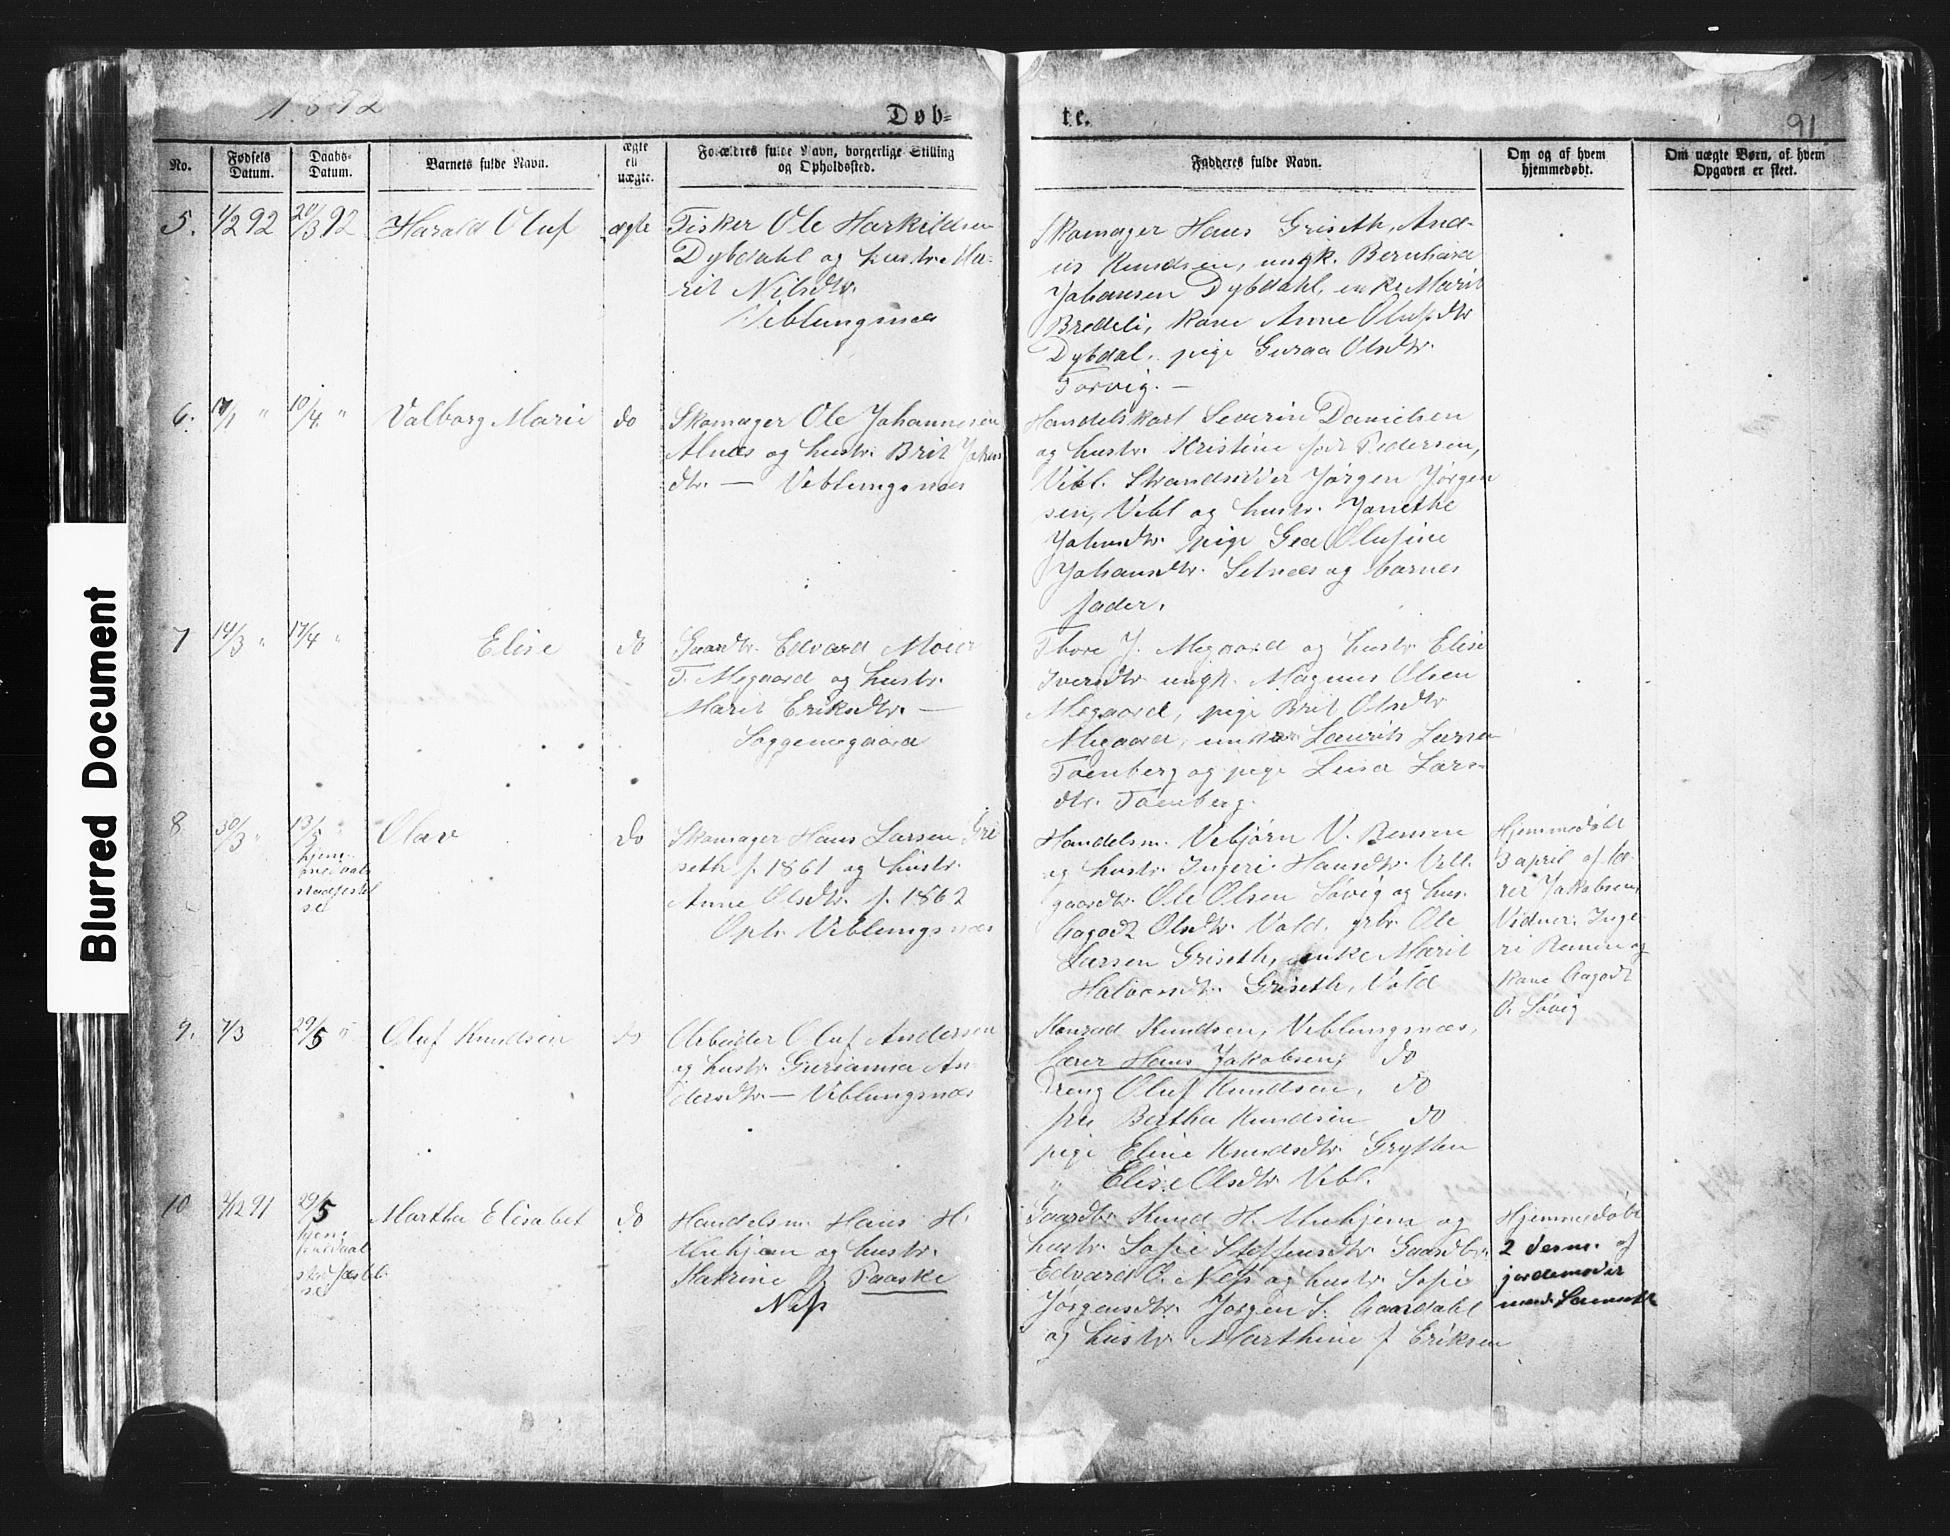 1892
Døb=
te.
91
No.
Fødsels Datum.
Daabs-Datum.
Barnets fulde Navn.
ægte ell uægte.
Forældres fulde Navn, borgerlige Stilling og Opholdssted.
Fadderes fulde Navn.
Om og af hvem hjemmedøbt.
Om uægte Børn, af hvem Opgaven er skeet.
5.
1/2 92
20/3 92
Harald Oluf
ægte
Fisker Ole Harkildsen
Dybdahl og hustr. Ma-
rit Nilsdtr.
Veblungsnæs
Skomager Hans Griseth, And-
us Knudsen, ungk. Bernhard
Johansen Dybdahl, enke Marit
Bredeli, kone Anne Olufsdtr
Dybdal. pige Guraa Olsdtr.
Torvig. —
6.
10/4 "
Valborg Marie
do
Skomager Ole Johannesen
Alnæs og hustr. Brit Johns
dtr. — Veblungsnæs
Handelskarl Severin Danielsen
og hustr. Kristine født Pedersen,
Vebl. Strandsidder Jørgen Jørgen
sen, Vebl og hustr. Janethe
Johnsdtr. pige Gea Olufine
Johansdtr. Setnæs og barnets
fader.
7
14/3 "
17/4 "
Elise
do
Gaardbr. Edvard Meier
T. Megaard og hustr.
Marit Eriksdtr. —
Soggemegaard
Thore J. Megaard og hustr Elise
Iversdtr ungk. Magnus Olsen
Megaard, pige Brit Olsdtr
Megaard, ungkar Laurits Larsen
Toenberg og pige Lusa Lars-
dtr. Toenberg.
8
30/3 "
13/5 "
hjem-
medaabs
stadfestel
se
Olav
do
Skomager Hans Larsen Gri
seth f. 1861 og hustr.
Anne Olsdtr. f. 1862
Oph. Veblungsnæs
Handelsm. Vebjørn V. Remen
og hustr. Ingeri Hansdtr. Vebl.
gaardbr. Ole Olsen Søvig og hus.
Aagodt Olsdtr. Vold. grbr. Ole
Larsen Griseth, enke Marit
Halvorsdtr. Griseth, Vold
Hjemmedøbt
3 april af læ-
rer Jakobsen,
Vidner. Inge-
ri Remen og
kone Aagodt
O. Søvig
9.
7/3
29/5 "
Oluf Knudsen
do
Arbeider Oluf Andersen
og hustr. Gurianna An
dersdtr. — Veblungsnæs
Konrad Knudsen, Veblungsnæs,
Lærer Hans Jakobsen, do
Dreng Oluf Knudsen, do
fru Bertha Knudsen do
pige Eline Knudsdtr. Grytten
" Elise Olsdtr. Vebl.
10
2/12 91
29/5
hjem-
medaabs
stadfæstel
se
Martha Elisabet
do
Handelsm. Hans H.
Unhjem og hustr.
Katrine f. Paaske
Næs
Gaardbr. Knud H. Unhjem og
hustr. Sofie Steffensdtr. Gaardbr.
Edvard O. Næs og hustr. Sofie
Jørgensdtr. Jørgen S. Aaandahl
og hustr Marthine f Eriksen
Hjemmedøbt
2 desm. af
jordemoder
Blurred Document